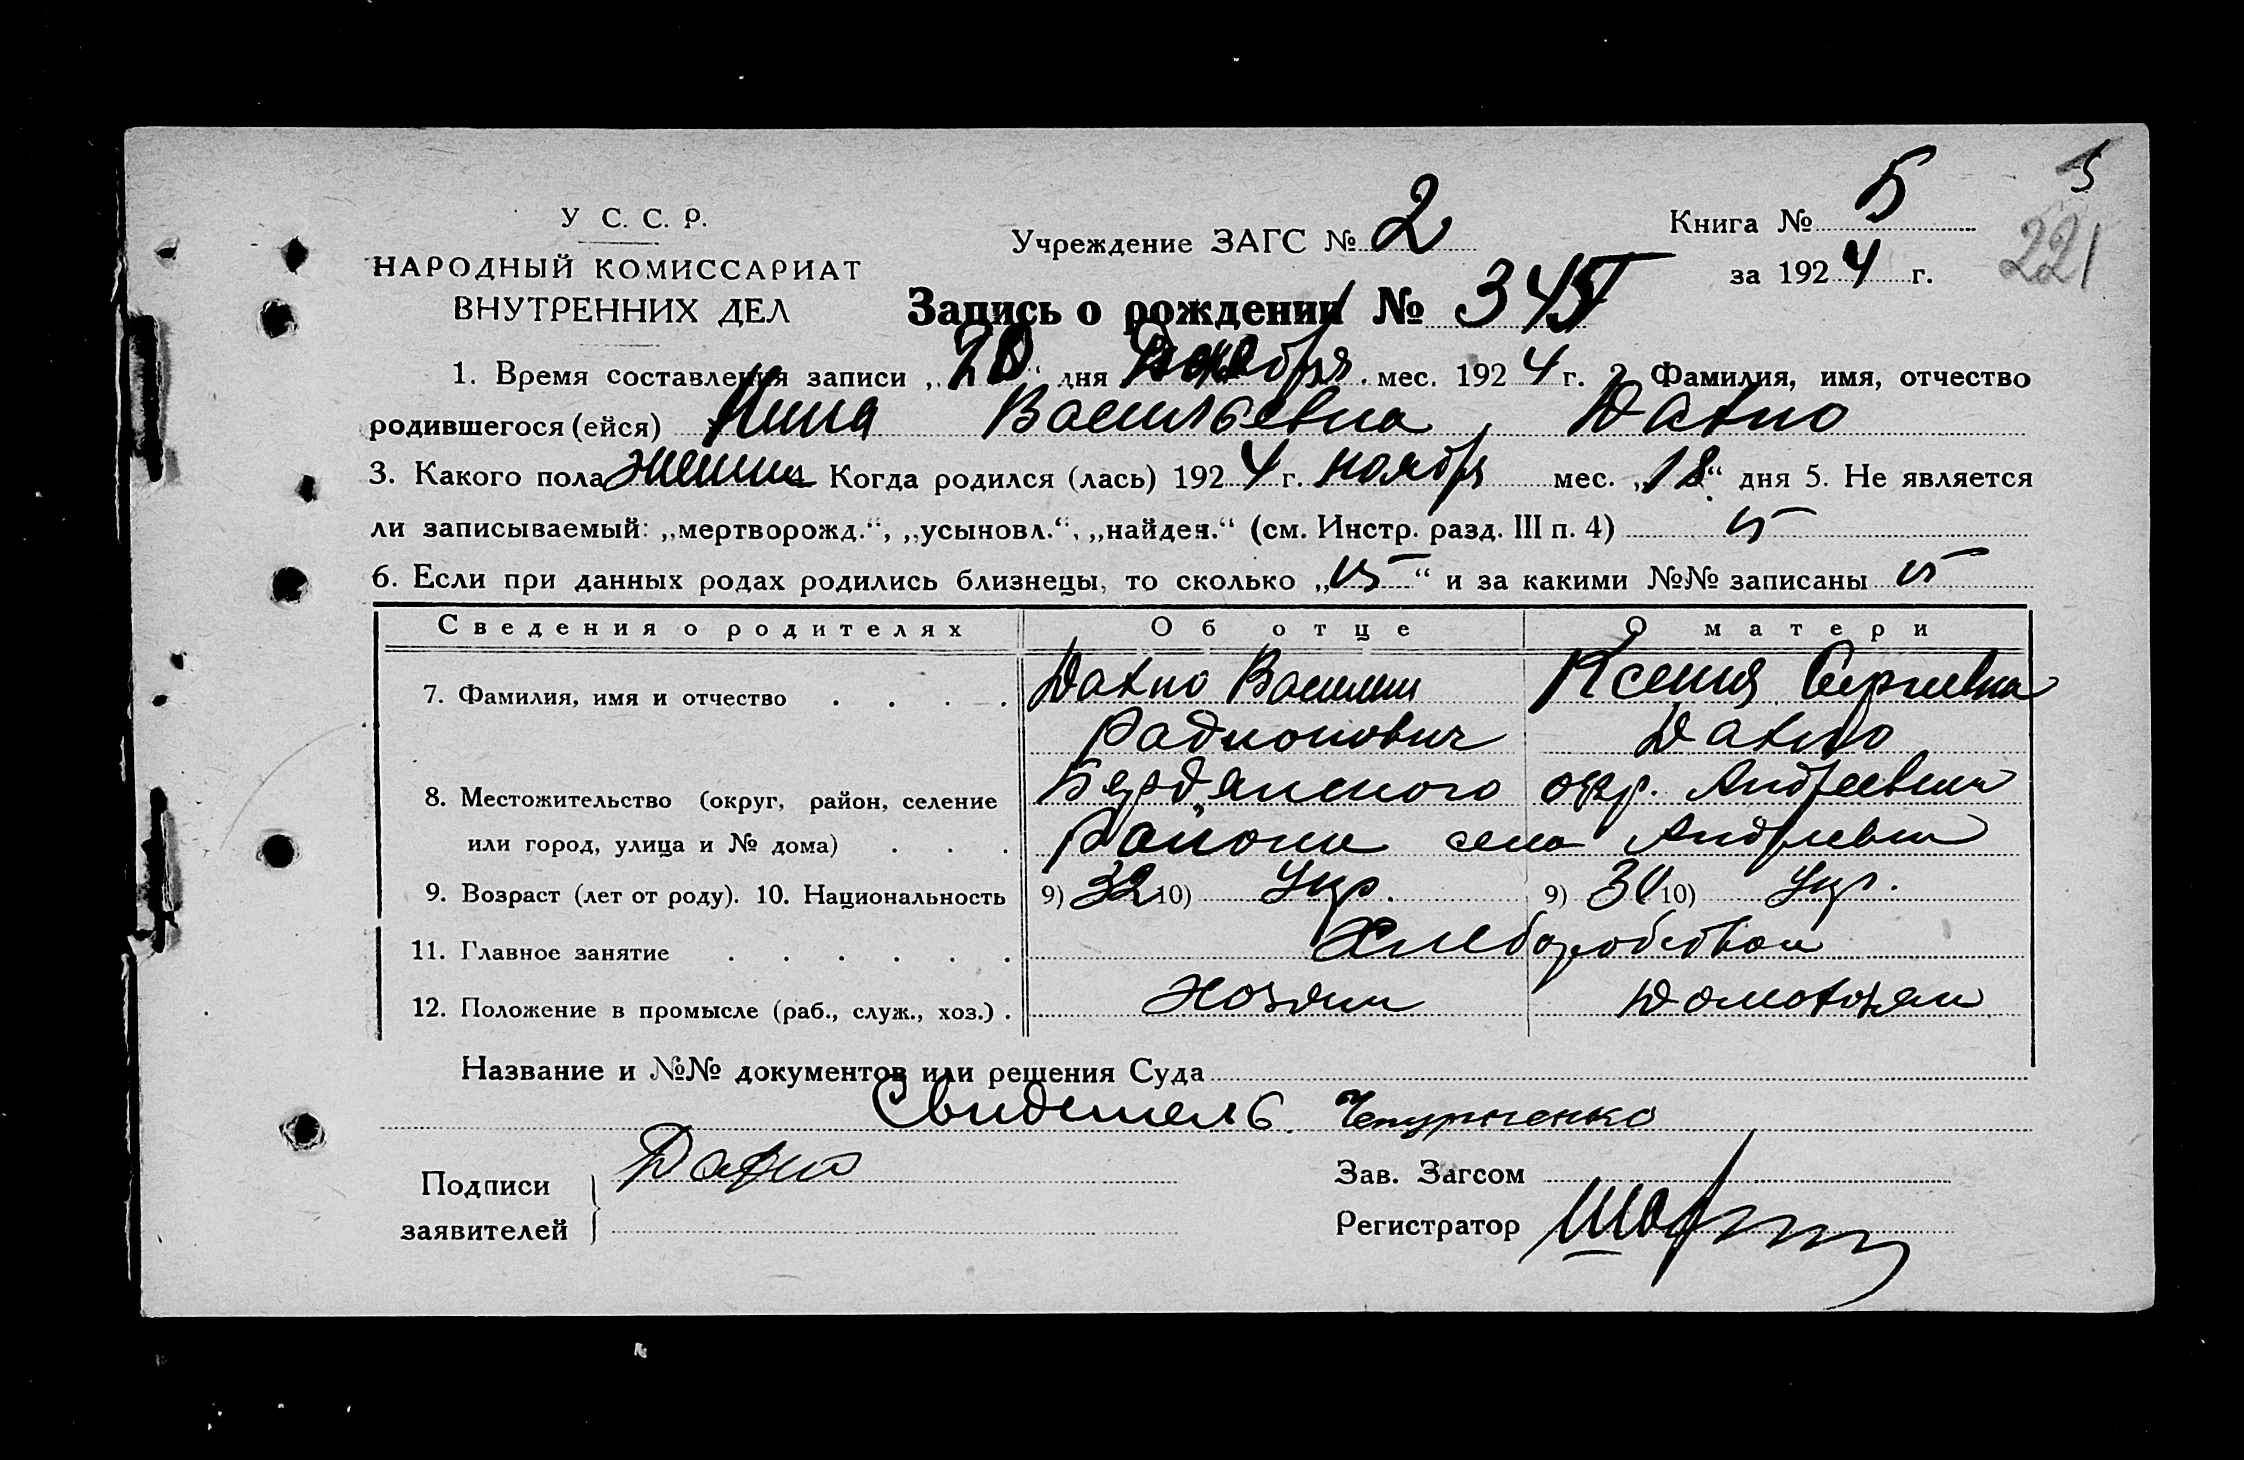 5
У С. С. Р.
Учреждение ЗАГС № 2
Книга № 5
221
НАРОДНЫЙ КОМИССАРИАТ
за 1924 г.
ВНУТРЕННИХ ДЕЛ
Запись о рождении № 345
1. Время составления записи „20“ дня Декабря мес. 1924 г. 2. Фамилия, имя, отчество
родившегося (ейся) Нина Васильевна Дахно
3. Какого пола женщ. Когда родился (лась) 1924 г. ноября мес. „18“ дня 5. Не является
ли записываемый: „мертворожд.“, „усыновл.“, „найден.“ (см. Инстр. разд. III п. 4)
6. Если при данных родах родились близнецы, то сколько „ “ и за какими №№ записаны
Сведения о родителях Об отце О матери
7. Фамилия, имя и отчество . . . . Дахно Василий Ксения Сергиевна
Радионович Дахно
8. Местожительство (округ, район, селение Бердянского окр. Андреевки
или город, улица и № дома) . . . Района село Андреевки
9. Возраст (лет от роду). 10. Национальность 9) 32 10) Укр. 9) 30 10) Укр.
11. Главное занятие . . . . . . Хлеборобство
12. Положение в промысле (раб., служ., хоз.) . Хозяин Домохозяй
Название и №№ документов или решения Суда
Свидетель
Подписи Дахно Зав. Загсом
заявителей Регистратор